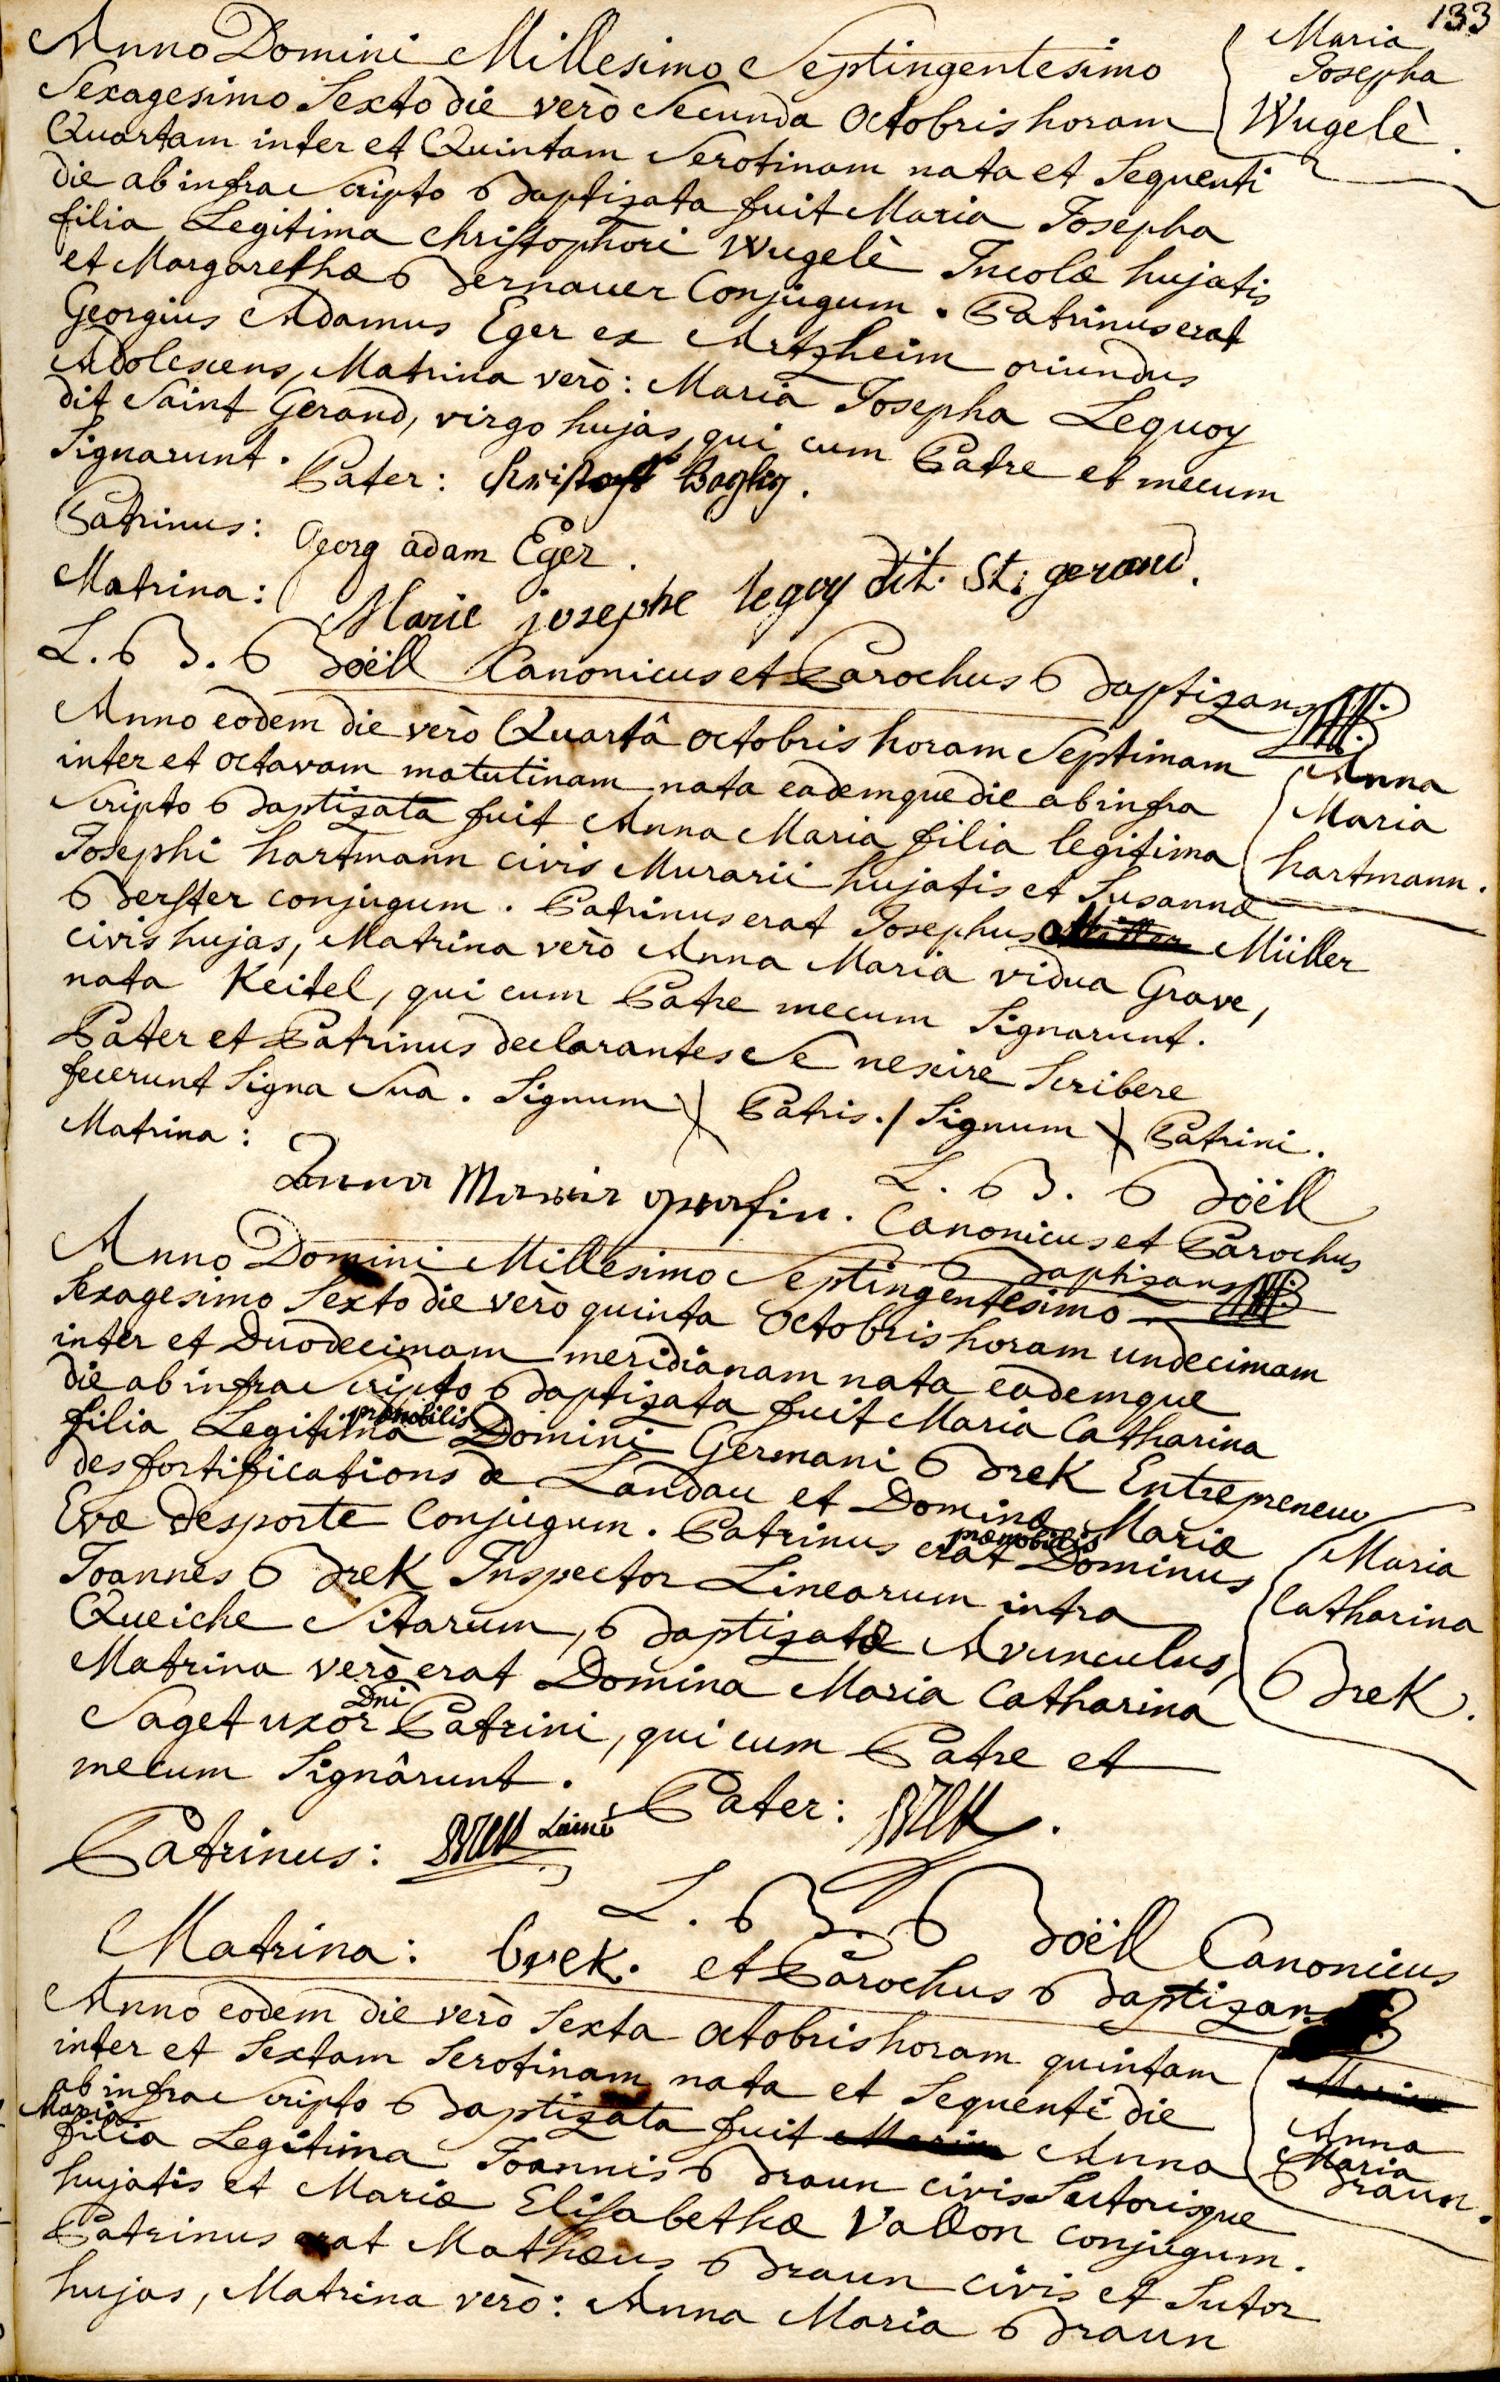 133
Anno Domini Millesimo Septingentesimo
Sexagesimo Sexto die verò Secunda Octobris horam
Quartam inter et Quintam Serotinam nata et Sequenti
die ab infra Scripto Baptizata fuit Maria Josepha
filia Legitima Christophori Wugelè Incolæ hujatis
et Margarethæ Bernauer Conjugum. Patrinus erat
Georgius Adamus Eger ex Artzheim oriundus
Adolescens, Matrina verò: Maria Josepha Lequoy
dit Saint Gerand, virgo hujas, qui cum Patre et mecum
Signarunt.
Maria
Josepha
Wugelè.
Pater:
Patrinus: Georg adam Eger.
Matrina: Marie josephe legoy dit. St: gerand.
L. B. Boëll Canonicus et Parochus Baptizans
Anno eodem die verò Quartâ Octobris horam Septimam
inter et octavam matutinam nata eademque die ab infra
Scripto Baptizata fuit Anna Maria filia legitima
Josephi hartmann civis Murarii hujatis et Susannæ
Berster conjugum. Patrinus erat Josephus Müller
civis hujas, Matrina verò Anna Maria vidua Grave,
nata Keitel, qui cum Patre mecum Signarunt.
Pater et Patrinus declarantes Se nescire Scribere
fecerunt Signa Sua. Signum Patris./ Signum Patrini.
Anna
Maria
hartmann.
Matrina: Anna Maria
L. B. Boëll
Canonicus et Parochus
Baptizans
Anno Domini Millesimo Septingentesimo
Sexagesimo Sexto die verò quinta Octobris horam undecimam
inter et Duodecimam meridianam nata eademque
die ab infra Scripto Baptizata fuit Maria Catharina
filia Legitima prænobilis Domini Germani Brek Entrepreneur
des fortifications de Landau et Dominæ Mariæ
Evæ Desporte Conjugum. Patrinus erat prænobilis Dominus
Joannes Brek Inspector Linearum intra
Queiche Sitarum, Baptizatæ Avunculus,
Matrina verò erat Domina Maria Catharina
Saget uxor Dni Patrini, qui cum Patre et
mecum Signârunt.
Maria
Catharina
Brek.
Pater: Brek.
Patrinus: Brek Lainé
Matrina: brek.
L. B. Boëll Canonicus
et Parochus Baptizans
Anno eodem die verò Sexta Octobris horam quintam
inter et Sextam Serotinam nata et Sequenti die
ab infra Scripto Baptizata fuit Maria Anna
Maria filia Legitima Joannis Braun civis Sutorisque
hujatis et Mariæ Elisabethæ Vallon conjugum.
Patrinus erat Mathæus Braun civis et Sutor
hujas, Matrina verò: Anna Maria Braun
Maria
Anna
Maria
Braun.